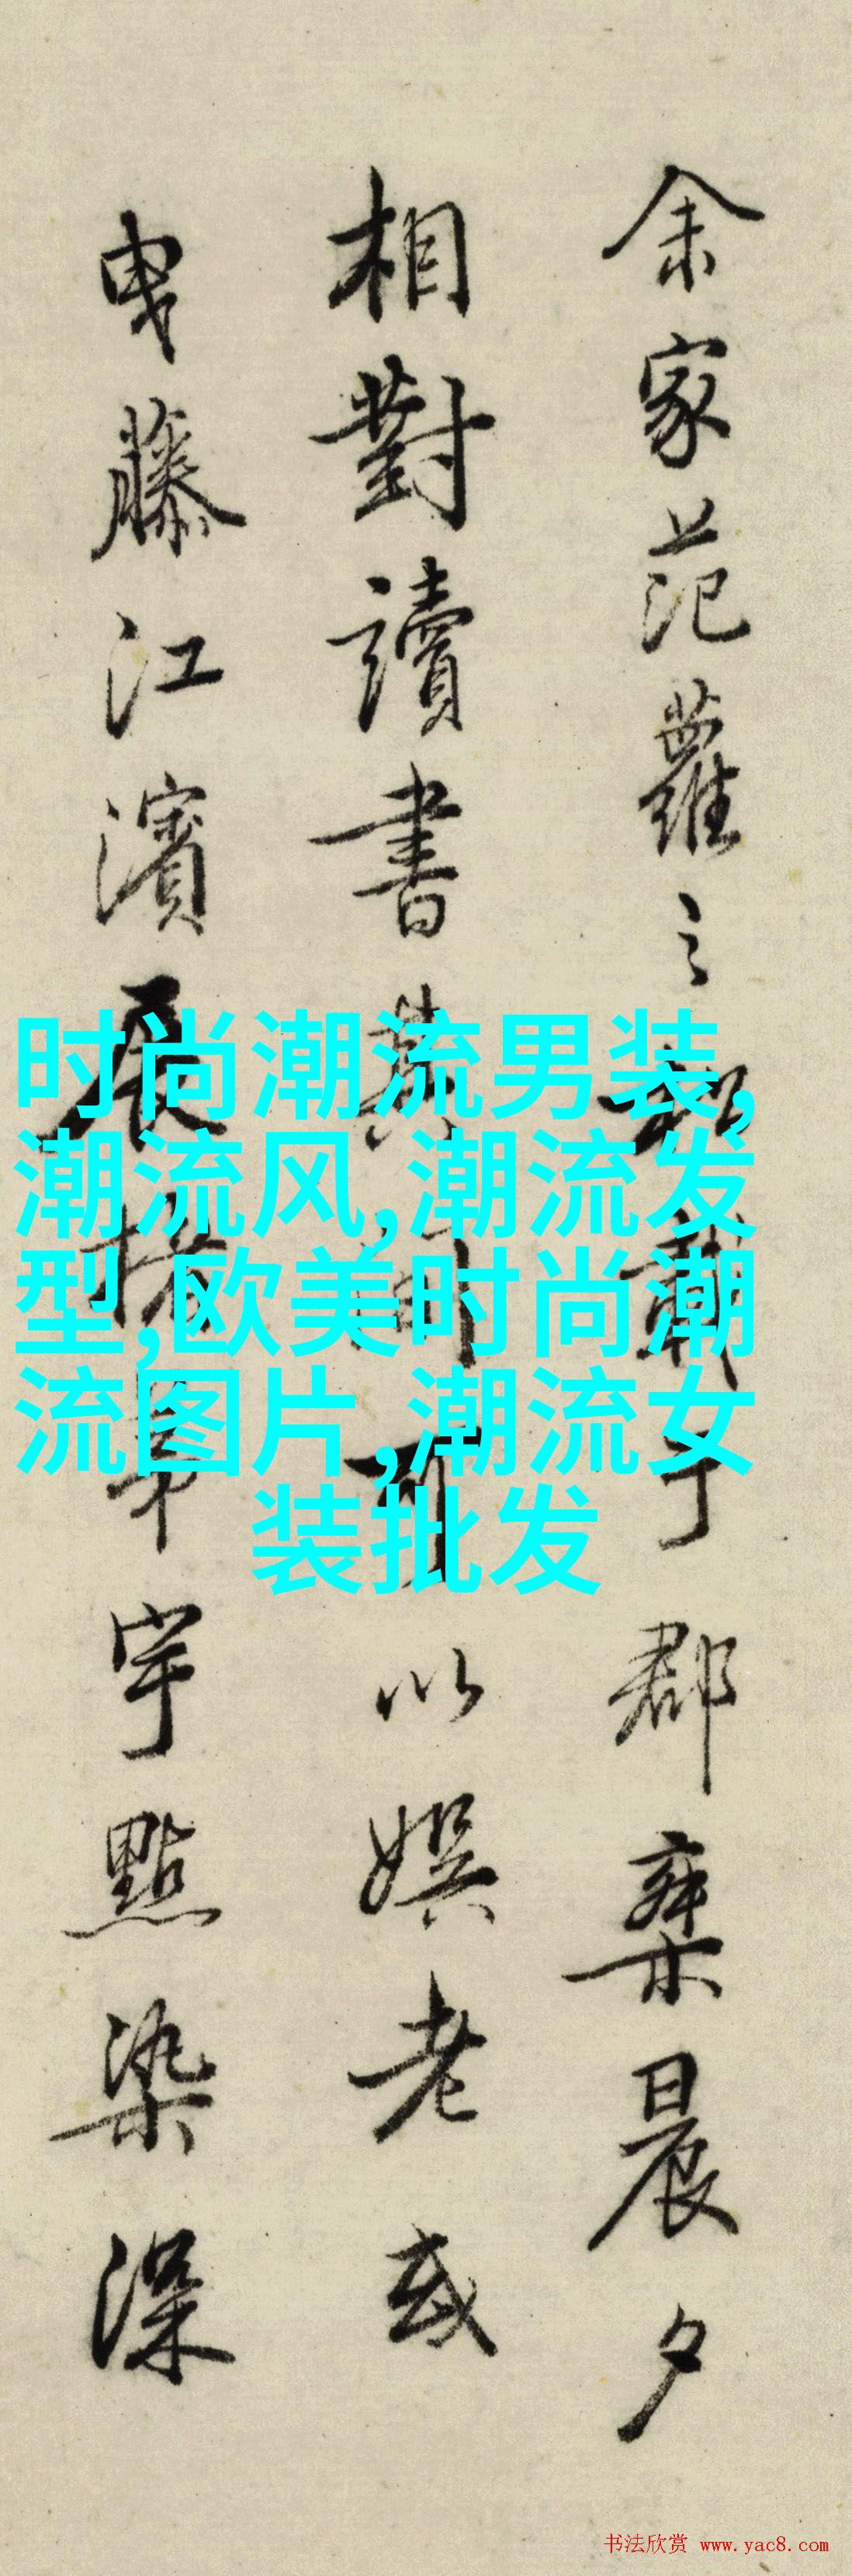 余家范蘿之
郡橐晨夕
相對讀書
以娯老或
曳藤江濱展
宇點染深
时尚潮流男装,
潮流风,潮流发
型,欧美时尚潮
流图片,潮流女
装批发
书法欣赏 www.yac8.com